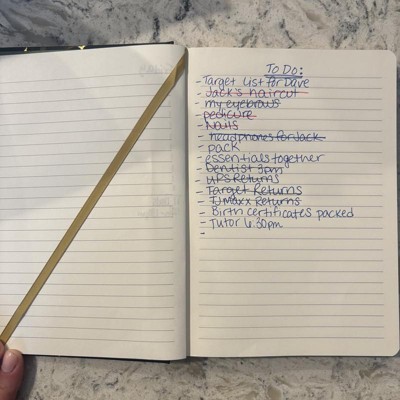 To Do:
- Target list for Dave
- Jack's haircut
- my eyebrows
pedicure
- Nails
- headphones for Jack
- pack
- essentials together
- Dentist 3pm
- UPS Returns
- Target Returns
- TJMaxx Returns
- Birth certificates packed
- Tutor 6:30pm
-